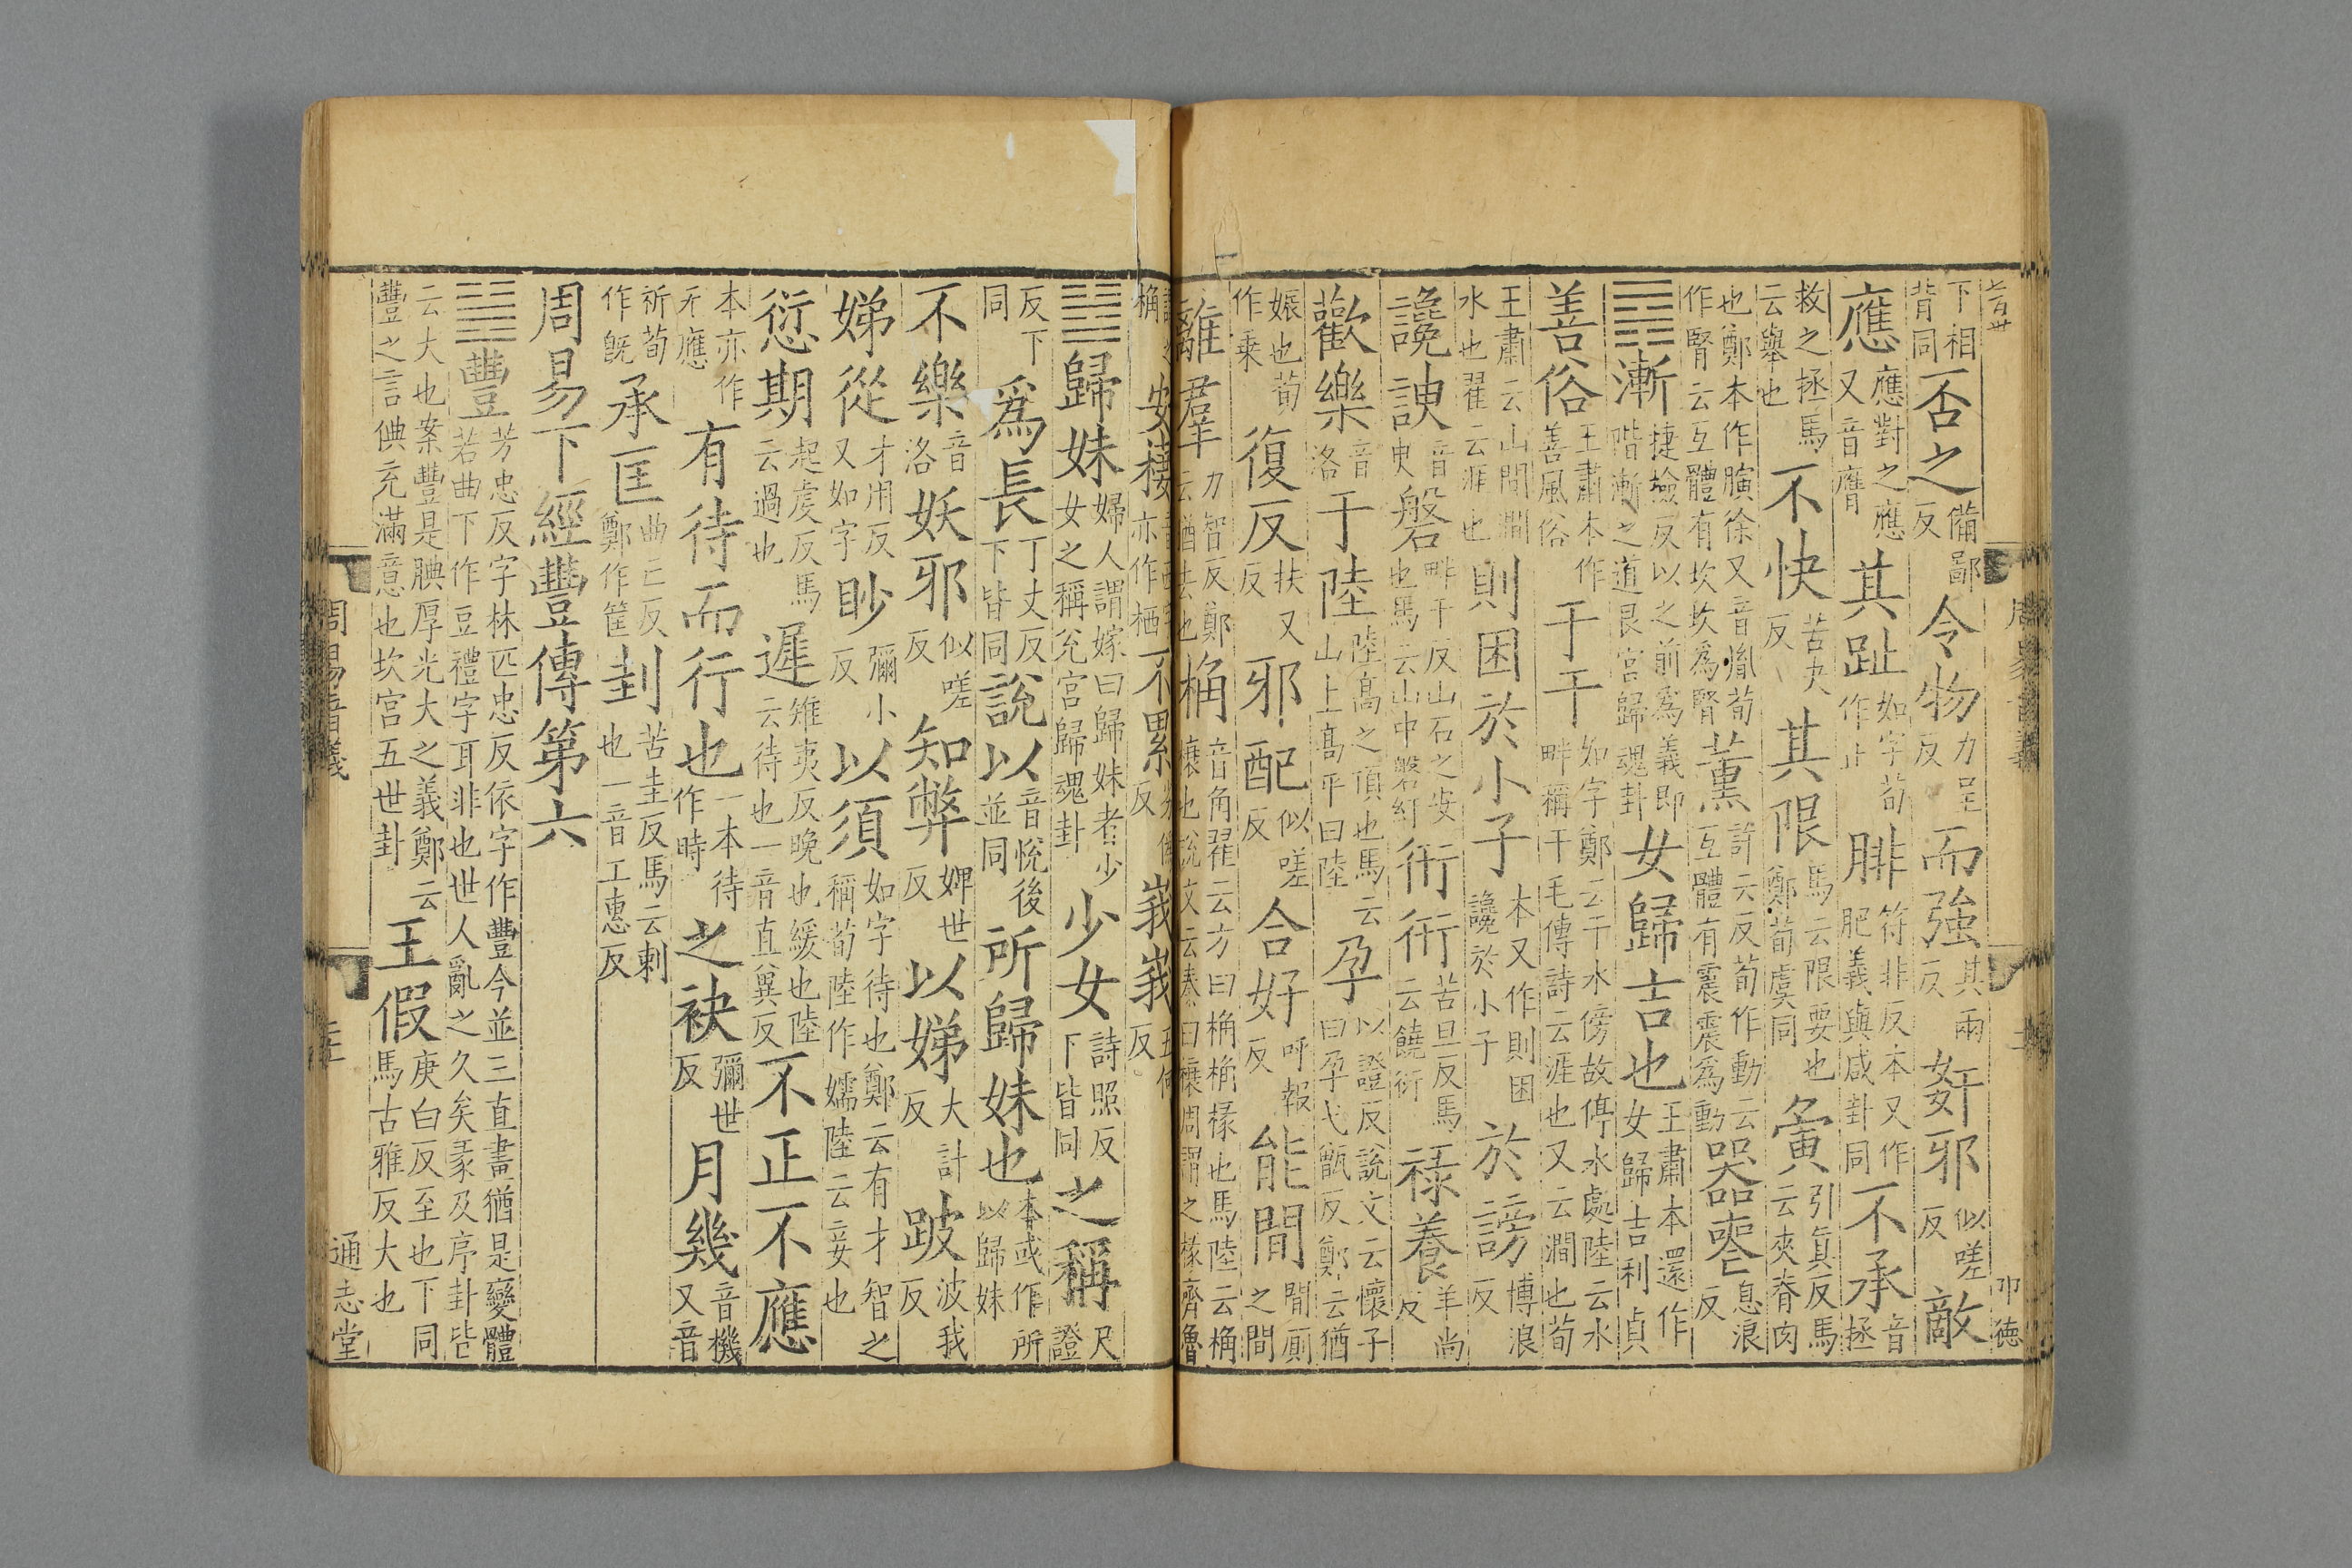 下相背同否之備鄙反令物力呈反而強其兩反姦邪似嗟反敵
應應對之應又音膺其趾如字荀作止腓符非反本又作肥義與咸卦同不承音拯
救之拯馬云舉也不快苦夬反其限馬云限要也鄭荀虞同夤引真反馬云夾脊肉
也鄭本作䏖徐又音胤荀作腎云互體有坎坎爲腎薰許云反荀作動云互體有震震爲動器喪息浪反
䷴漸捷撿反以之前爲義即階漸之道艮宮歸魂卦女歸吉也王肅本還作女歸吉利貞
善俗王肅本作善風俗于干如字鄭云干水傍故停水處陸云水畔稱干毛傳詩云涯也又云澗也荀
王肅云山間澗水也翟云涯也則困於小子本又作則困讒於小子於謗博浪反
讒諛音臾磐畔干反山石之安也馬云山中磐紆衎衎苦旦反馬云饒衍祿養羊尚反
歡樂音洛于陸陸高之頂也馬云山上高平曰陸孕以證反說文云懷子曰孕弋甑反鄭云猶
娠也荀作乘復反扶又反邪配似嗟反合好呼報反能閒閒厠之閒
離群力智反鄭云猶去也桷音角翟云方曰桷桷椽也馬陸云桷榱也說文云秦曰榱周謂之椽齊魯
謂之桷安棲音西字亦作栖不累劣僞反峩峩五何反
䷵歸妹婦人謂嫁曰歸妹者少女之稱兌宮歸魂卦少女詩照反下皆同之稱尺證
反下同爲長丁丈反下皆同說以音悅後並同所歸妹也本或作所以歸妹
不樂音洛妖邪似嗟反知弊婢世反以娣大計反跛波我反
娣從才用反又如字眇彌小反以須如字待也鄭云有才智之稱荀陸作嬬陸云妾也
愆期起虔反馬云過也遲雉夷反晚也緩也陸云待也一音直冀反不正不應
本亦作无應有待而行也一本待作時之袂彌世反月幾音機又音
祈荀作旣承匡曲亡反鄭作筐刲苦圭反馬云剌也一音工惠反
周易下經豐傳第六
䷶豐芳忠反字林匹忠反依字作豐今並三直畫猶是變體若曲下作豆禮字耳非也世人亂之久矣彖及序卦皆
云大也案豐是腆厚光大之義鄭云豐之言倎充滿意也坎宮五世卦王假庚白反至也下同馬古雅反大也
周易音義
通志堂